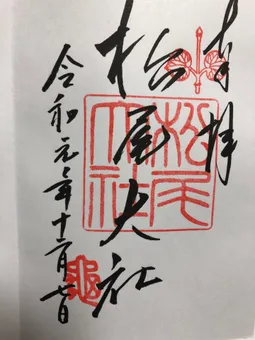 奉拝
松尾大社
令和元年十二月七日
松尾
大社